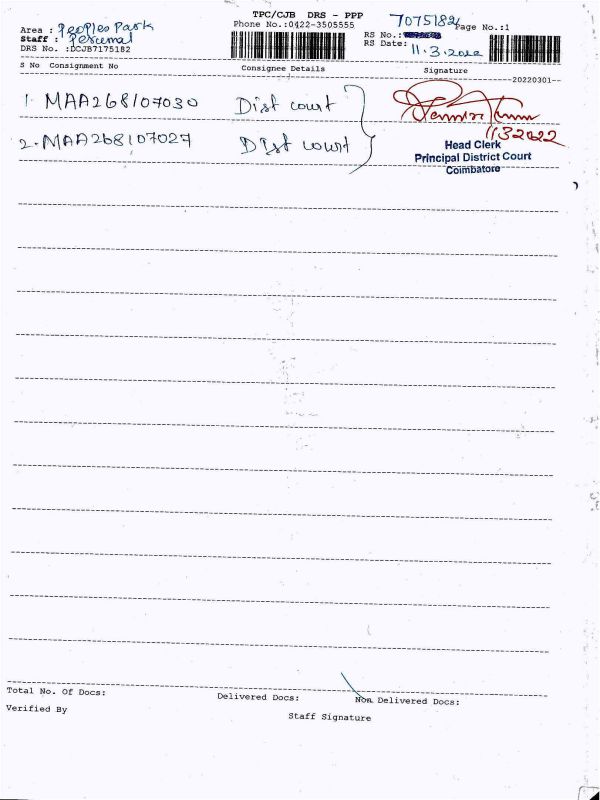 TPC/CJB DRS - PPP
Area : Peoples Park Phone No.:0422-3505555 7075182 Page No.:1
Staff : Perumal RS No.:
DRS No. :DCJB7175182 RS Date: 11.3.2022
S No Consignment No Consignee Details Signature
20220301
1. MAA268107030 Dist court
11 3 2022
2. MAA268107027 Dist court
Head Clerk
Principal District Court
Coimbatore
Total No. Of Docs: Delivered Docs: Non Delivered Docs:
Verified By Staff Signature